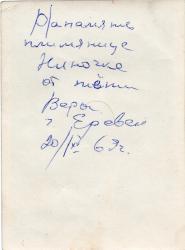 На память
племянице
Ниночке
от тёти
Веры
г Ереван
20/IV 69г.